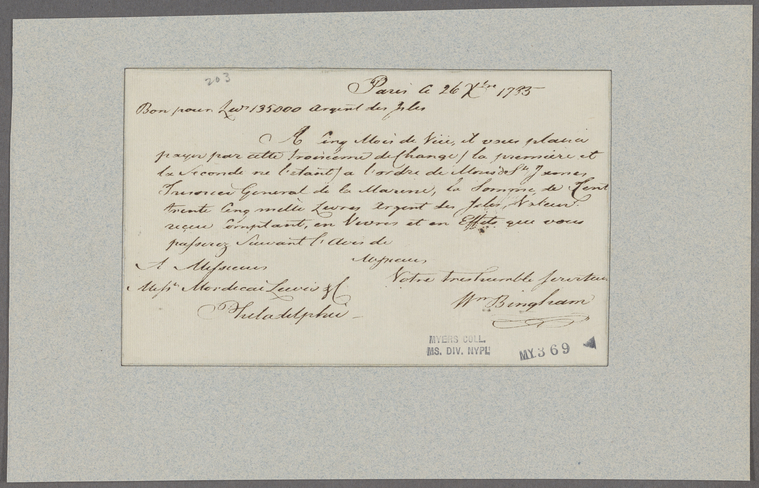 203
Paris le 26 Xbre 1785
Bon pour Lvs 135000 argent des Isles
A Cinq Mois de Vüe, il vous plaira
payer par cette troisieme de Change / la premiere et
la Seconde ne l'etant / a l'ordre de Monsr. St. James
Tresorier General de la Marine, la Somme de Cent
trente Cinq mille Livres Argent des Isles, Valeur
reçue Comptant, en Vivres et en Effets que vous
passerez Suivant l'avis de
Messieurs
A Messieurs
Votre tres humble Serviteur
Messrs Mordecai Lewis & C
Wm Bingham
Philadelphie
MYERS COLL.
MS. DIV. NYPL
MY.369